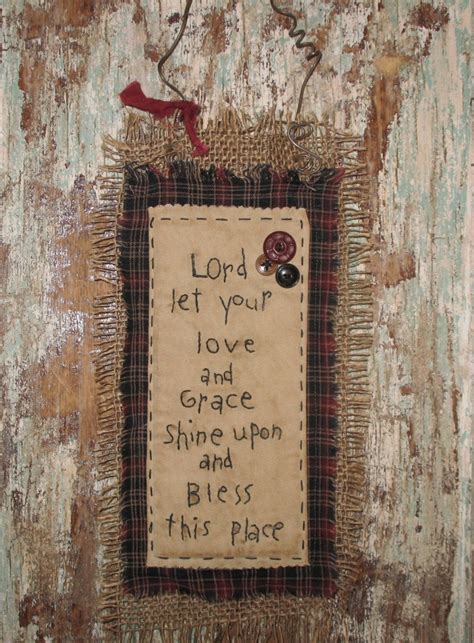 Lord
let your
love
and
Grace
shine upon
and
Bless
this place